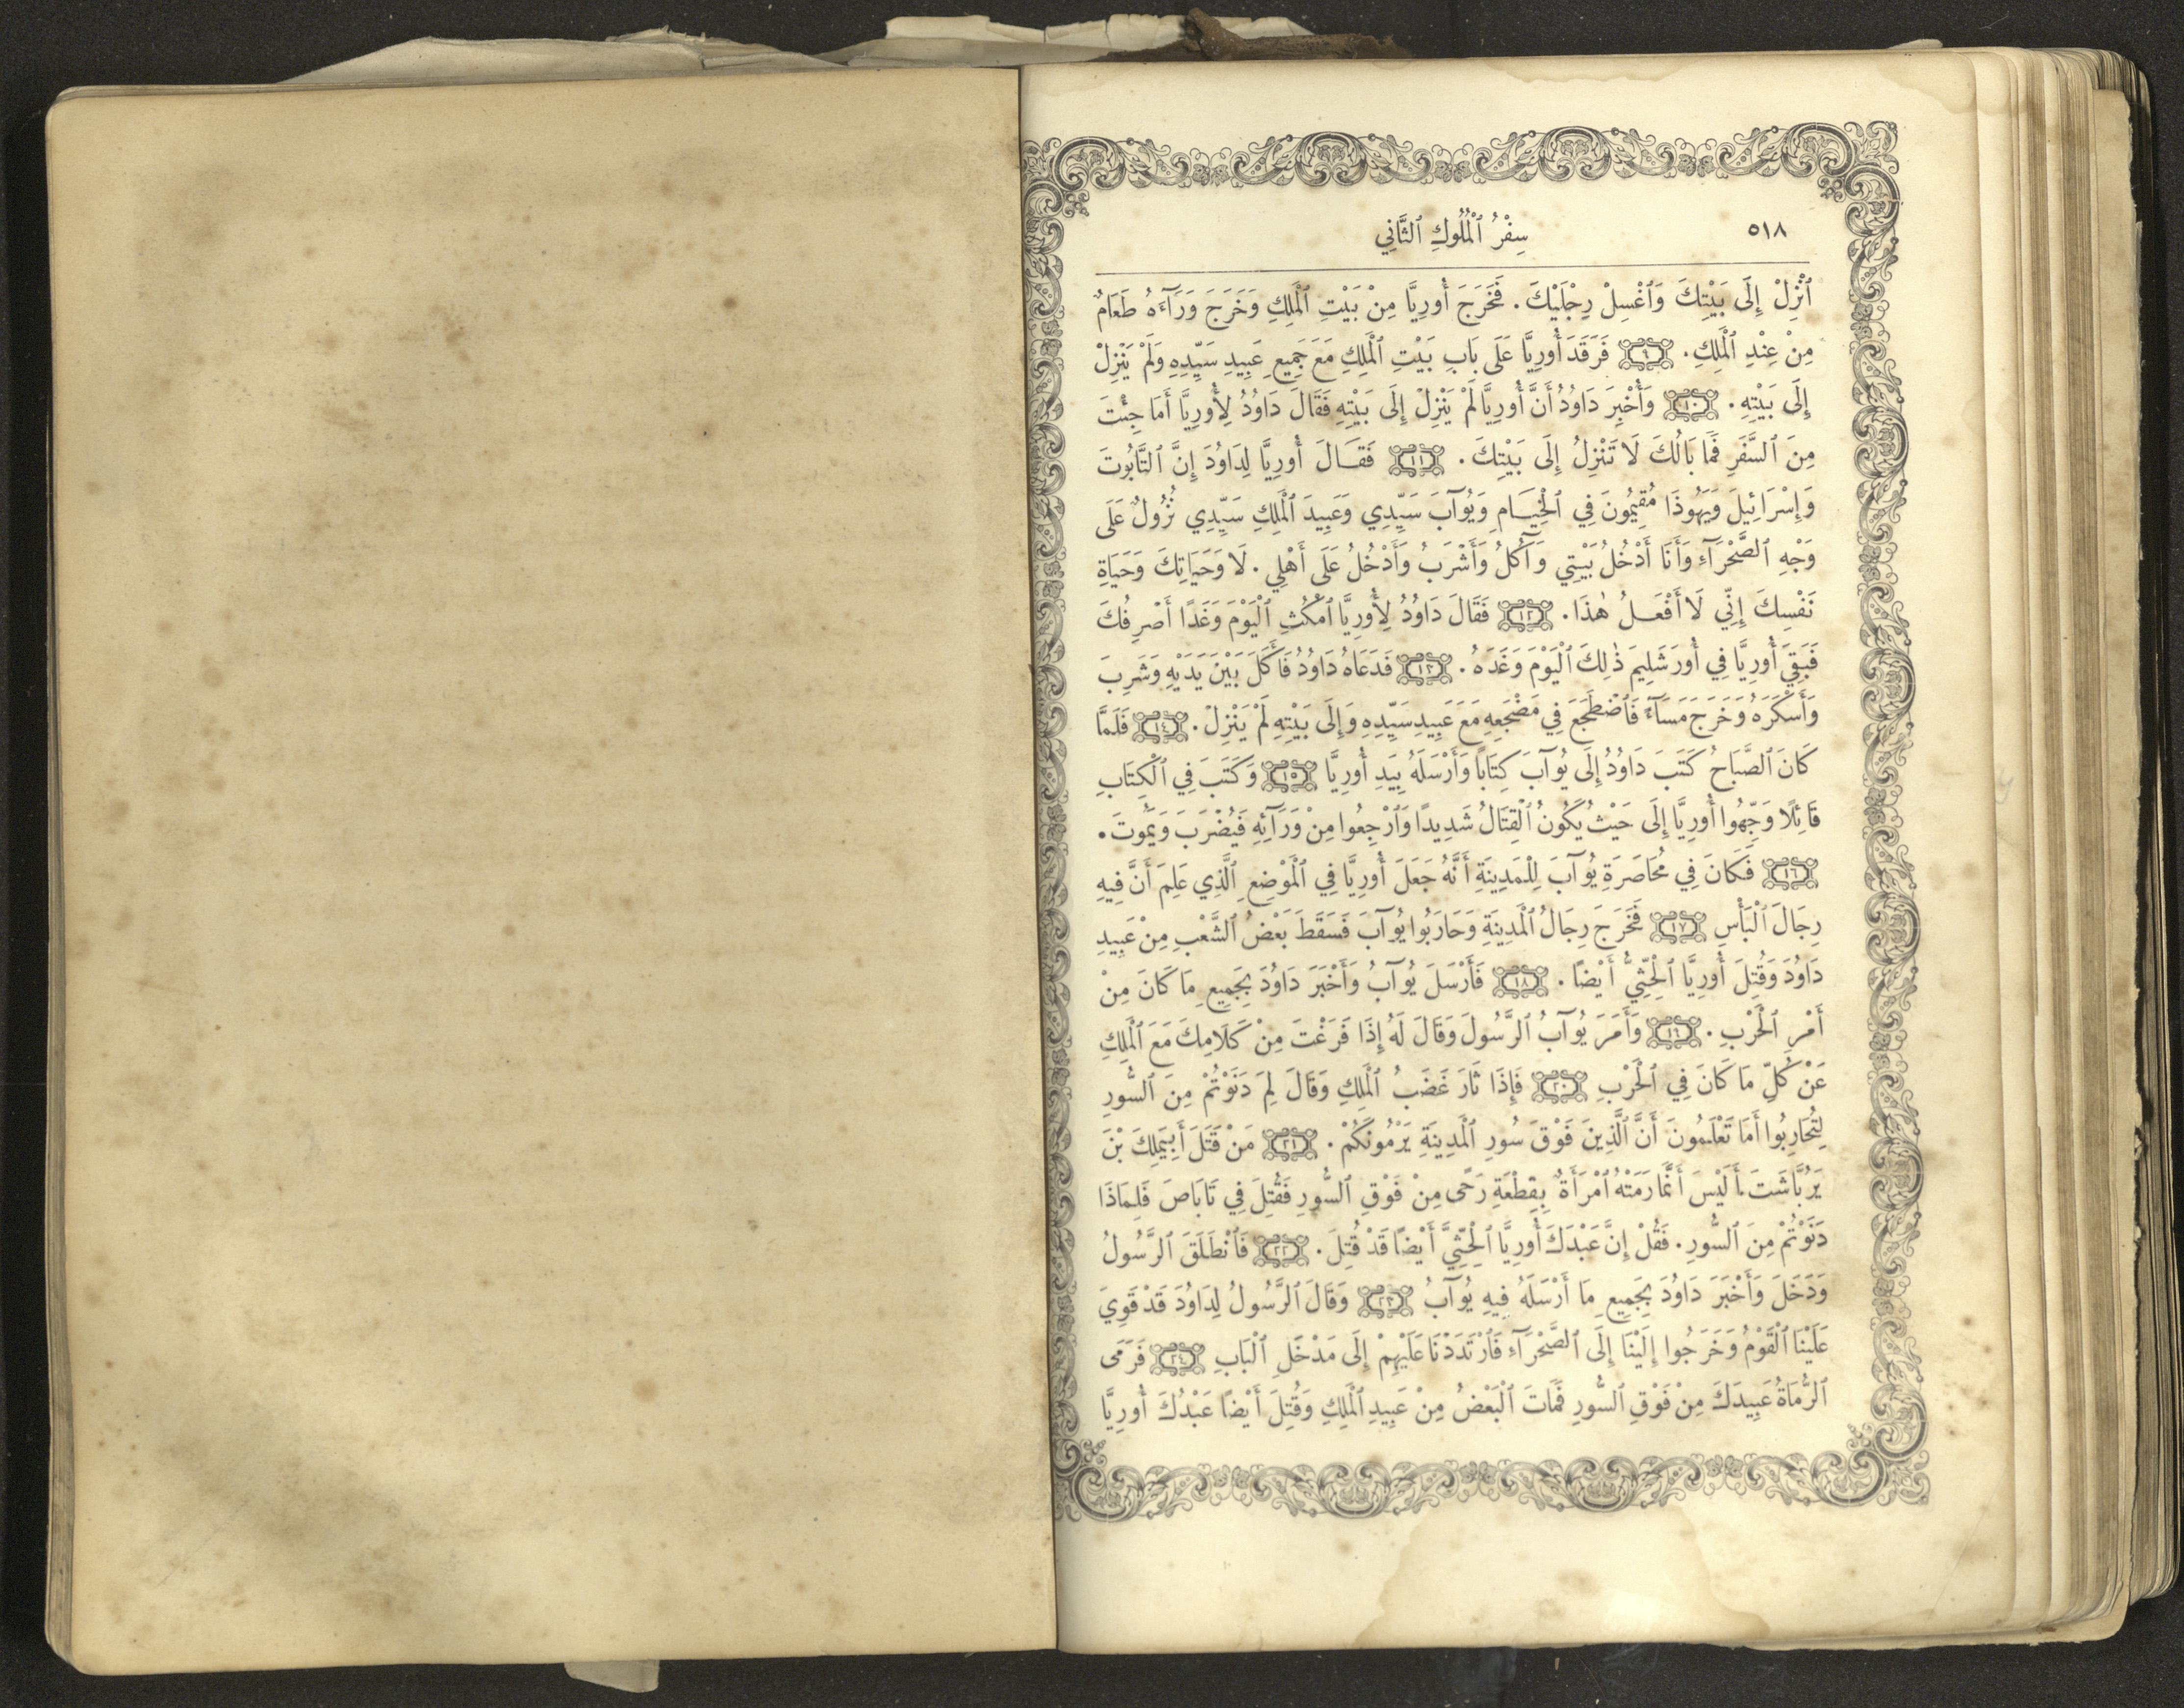 ٥١٨
سِفْرُ ٱلْمُلُوكِ ٱلثَّانِي
ٱنْزِلْ إِلَى بَيْتِكَ وَٱغْسِلْ رِجْلَيْكَ. فَخَرَجَ أُورِيَّا مِنْ بَيْتِ ٱلْمَلِكِ وَخَرَجَ وَرَآءَهُ طَعَامٌ
مِنْ عِنْدِ ٱلْمَلِكِ. ٩ فَرَقَدَ أُورِيَّا عَلَى بَابِ بَيْتِ ٱلْمَلِكِ مَعَ جَمِيعِ عَبِيدِ سَيِّدِهِ وَلَمْ يَنْزِلْ
إِلَى بَيْتِهِ. ١٠ وَأُخْبِرَ دَاوُدُ أَنَّ أُورِيَّا لَمْ يَنْزِلْ إِلَى بَيْتِهِ فَقَالَ دَاوُدُ لِأُورِيَّا أَمَا جِئْتَ
مِنَ ٱلسَّفَرِ فَمَا بَالُكَ لَا تَنْزِلُ إِلَى بَيْتِكَ. ١١ فَقَالَ أُورِيَّا لِدَاوُدَ إِنَّ ٱلتَّابُوتَ
وَإِسْرَائِيلَ وَيَهُوذَا مُقِيمُونَ فِي ٱلْخِيَامِ وَيُوآبَ سَيِّدِي وَعَبِيدَ ٱلْمَلِكِ سَيِّدِي نُزُولٌ عَلَى
وَجْهِ ٱلصَّحْرَآءِ وَأَنَا أَدْخُلُ بَيْتِي وَآكُلُ وَأَشْرَبُ وَأَدْخُلُ عَلَى أَهْلِي. لَا وَحَيَاتِكَ وَحَيَاةِ
نَفْسِكَ إِنِّي لَا أَفْعَلُ هٰذَا. ١٢ فَقَالَ دَاوُدُ لِأُورِيَّا ٱمْكُثِ ٱلْيَوْمَ وَغَدًا أَصْرِفُكَ
فَبَقِيَ أُورِيَّا فِي أُورَشَلِيمَ ذٰلِكَ ٱلْيَوْمَ وَغَدَهُ. ١٣ فَدَعَاهُ دَاوُدُ فَأَكَلَ بَيْنَ يَدَيْهِ وَشَرِبَ
وَأَسْكَرَهُ وَخَرَجَ مَسَآءً فَٱضْطَجَعَ فِي مَضْجَعِهِ مَعَ عَبِيدِ سَيِّدِهِ وَإِلَى بَيْتِهِ لَمْ يَنْزِلْ. ١٤ فَلَمَّا
كَانَ ٱلصَّبَاحُ كَتَبَ دَاوُدُ إِلَى يُوآبَ كِتَابًا وَأَرْسَلَهُ بِيَدِ أُورِيَّا ١٥ وَكَتَبَ فِي ٱلْكِتَابِ
قَائِلًا وَجِّهُوا أُورِيَّا إِلَى حَيْثُ يَكُونُ ٱلْقِتَالُ شَدِيدًا وَٱرْجِعُوا مِنْ وَرَآئِهِ فَيُضْرَبَ وَيَمُوتَ.
١٦ فَكَانَ فِي مُحَاصَرَةِ يُوآبَ لِلْمَدِينَةِ أَنَّهُ جَعَلَ أُورِيَّا فِي ٱلْمَوْضِعِ ٱلَّذِي عَلِمَ أَنَّ فِيهِ
رِجَالَ ٱلْبَأْسِ ١٧ فَخَرَجَ رِجَالُ ٱلْمَدِينَةِ وَحَارَبُوا يُوآبَ فَسَقَطَ بَعْضُ ٱلشَّعْبِ مِنْ عَبِيدِ
دَاوُدَ وَقُتِلَ أُورِيَّا ٱلْحِثِّيُّ أَيْضًا. ١٨ فَأَرْسَلَ يُوآبُ وَأَخْبَرَ دَاوُدَ بِجَمِيعِ مَا كَانَ مِنْ
أَمْرِ ٱلْحَرْبِ. ١٩ وَأَمَرَ يُوآبُ ٱلرَّسُولَ وَقَالَ لَهُ إِذَا فَرَغْتَ مِنْ كَلَامِكَ مَعَ ٱلْمَلِكِ
عَنْ كُلِّ مَا كَانَ فِي ٱلْحَرْبِ ٢٠ فَإِذَا ثَارَ غَضَبُ ٱلْمَلِكِ وَقَالَ لِمَ دَنَوْتُمْ مِنَ ٱلسُّورِ
لِتُحَارِبُوا أَمَا تَعْلَمُونَ أَنَّ ٱلَّذِينَ فَوْقَ سُورِ ٱلْمَدِينَةِ يَرْمُونَكُمْ. ٢١ مَنْ قَتَلَ أَبِيمَلِكَ بْنَ
يَرُبَّاشَتَ. أَلَيْسَ أَنَّمَا رَمَتْهُ ٱمْرَأَةٌ بِقِطْعَةِ رَحًى مِنْ فَوْقِ ٱلسُّورِ فَقُتِلَ فِي تَابَاصَ فَلِمَاذَا
دَنَوْتُمْ مِنَ ٱلسُّورِ. فَقُلْ إِنَّ عَبْدَكَ أُورِيَّا ٱلْحِثِّيَّ أَيْضًا قَدْ قُتِلَ. ٢٢ فَٱنْطَلَقَ ٱلرَّسُولُ
وَدَخَلَ وَأَخْبَرَ دَاوُدَ بِجَمِيعِ مَا أَرْسَلَهُ فِيهِ يُوآبُ ٢٣ وَقَالَ ٱلرَّسُولُ لِدَاوُدَ قَدْ قَوِيَ
عَلَيْنَا ٱلْقَوْمُ وَخَرَجُوا إِلَيْنَا إِلَى ٱلصَّحْرَآءِ فَٱرْتَدَدْنَا عَلَيْهِمْ إِلَى مَدْخَلِ ٱلْبَابِ ٢٤ فَرَمَى
ٱلرُّمَاةُ عَبِيدَكَ مِنْ فَوْقِ ٱلسُّورِ فَمَاتَ ٱلْبَعْضُ مِنْ عَبِيدِ ٱلْمَلِكِ وَقُتِلَ أَيْضًا عَبْدُكَ أُورِيَّا